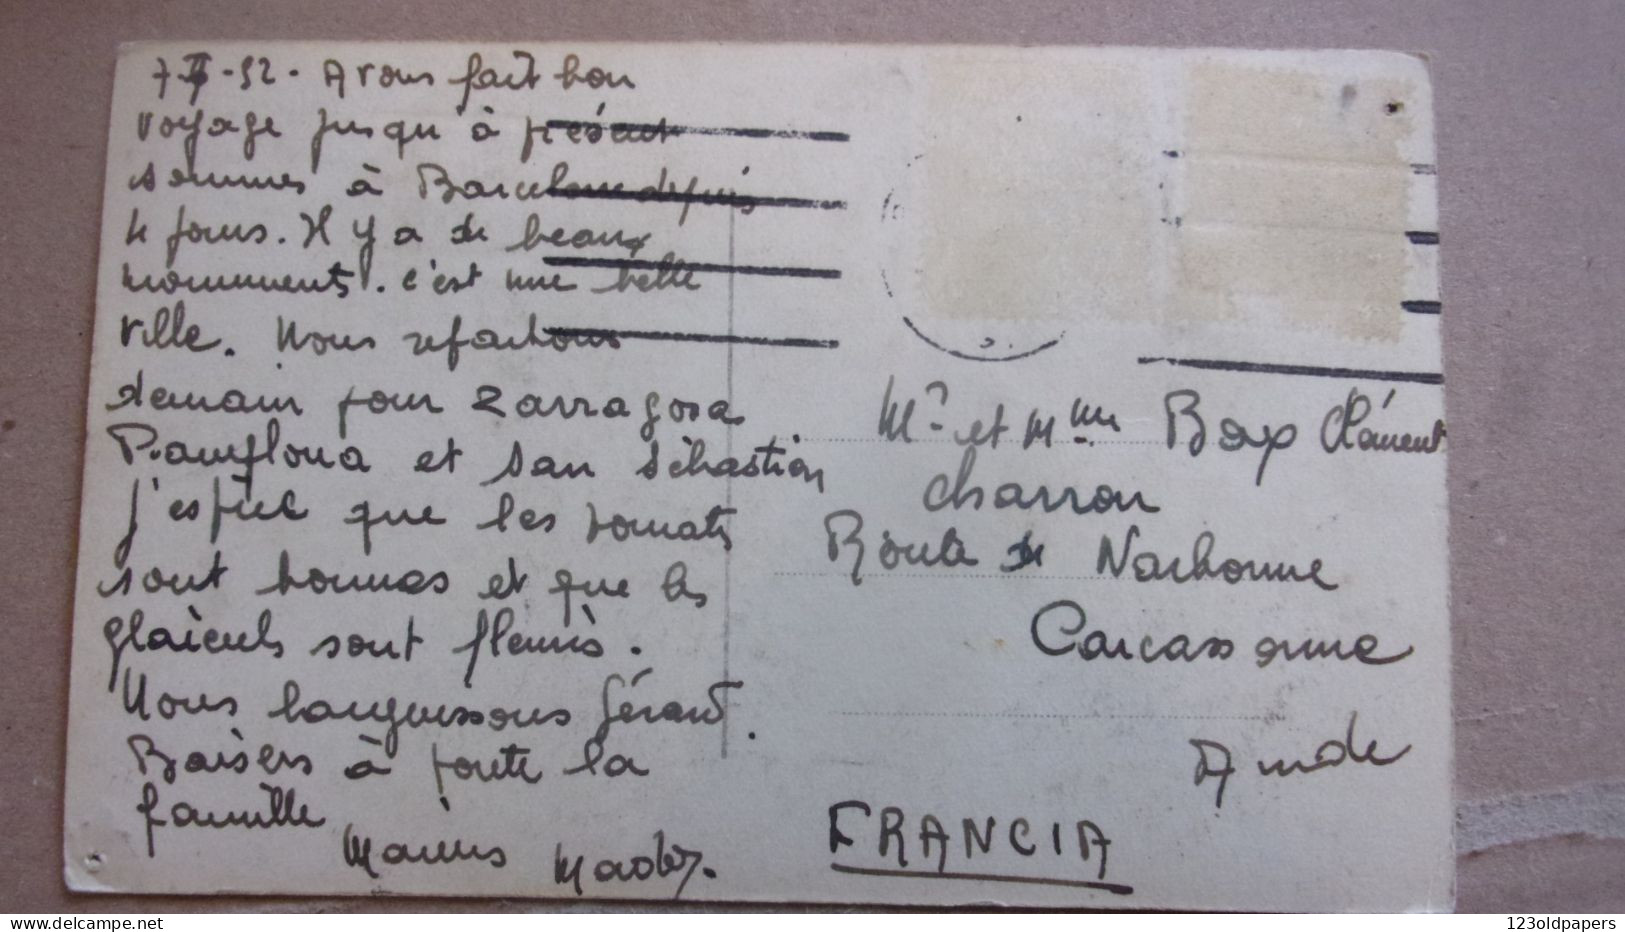 Avons fait bon
voyage jusqu'à présent
sommes à Barcelone depuis
4 jours. Il y a de beaux
monuments. c'est une belle
ville. Nous repartons
demain pour Zarragosa
Pamplona et San Sébastian
j'espère que les tomats
sont bonnes et que les
glaieuls sont fleuris.
Nous languissons Gérard.
Baisers à toute la
famille
Marius
Mr et Mme Clément
charron
Route de Narbonne
Carcassonne
Aude
FRANCIA
123oldpapers